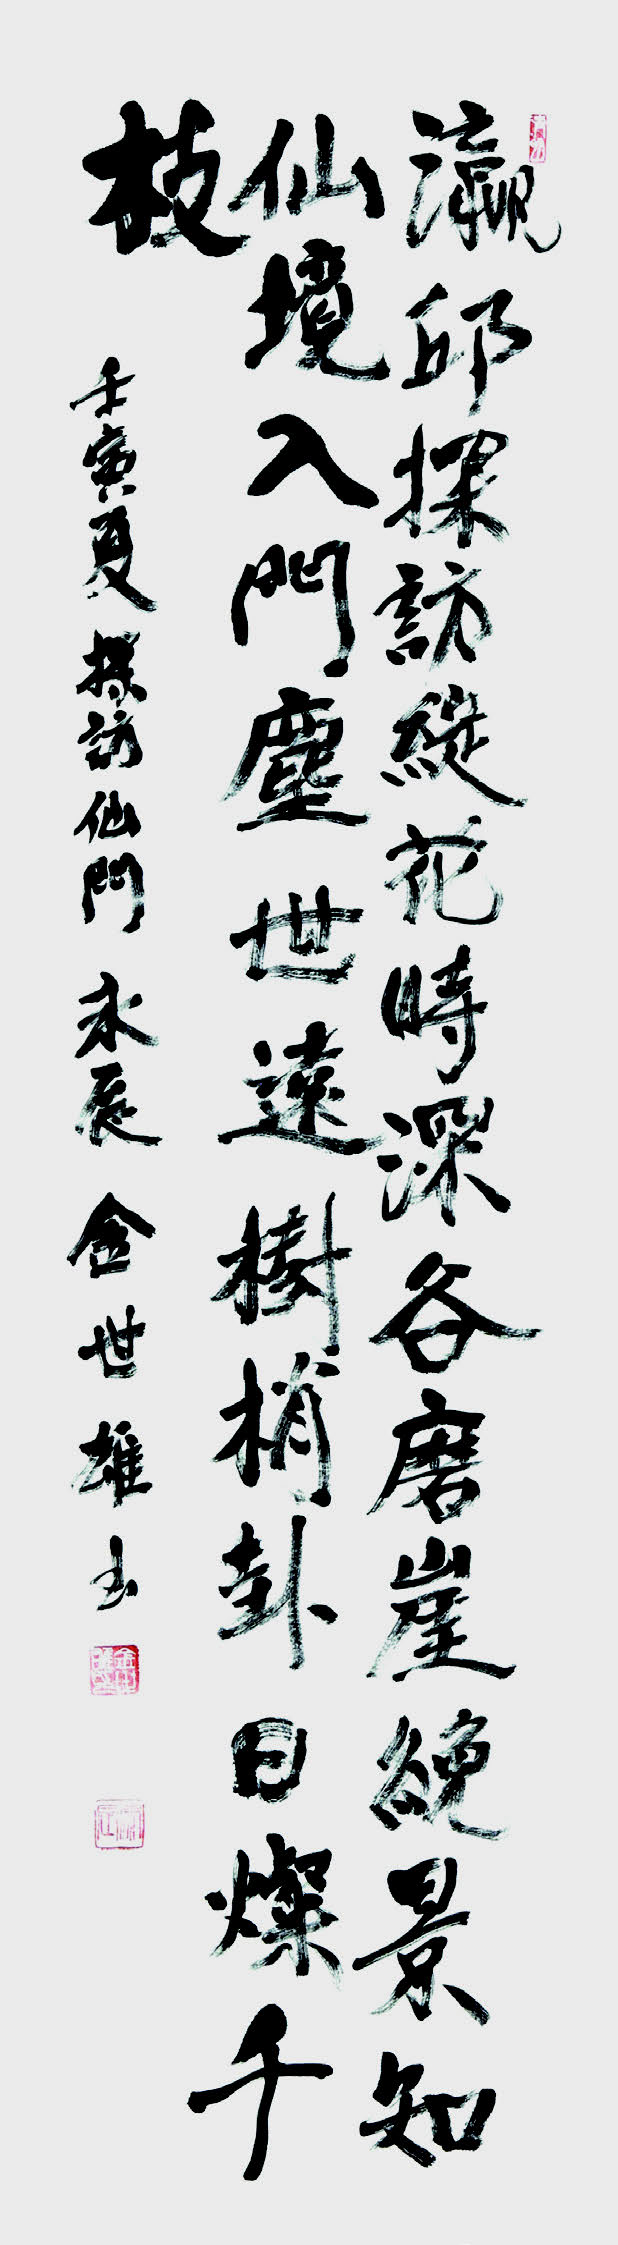 瀛邱探訪綻花時深谷磨崖絶景知
仙境入門塵世遠樹梢卦日燦千
枝
壬寅夏探訪仙門 永辰 金世雄書